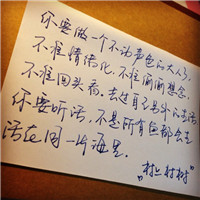 你要做一个不动声色的大人了，
不准情绪化，不准偷偷想念，
不准回头看。去过自己另外的生活
你要听话，不是所有鱼都会生
活在同一片海里。
"村上村树"